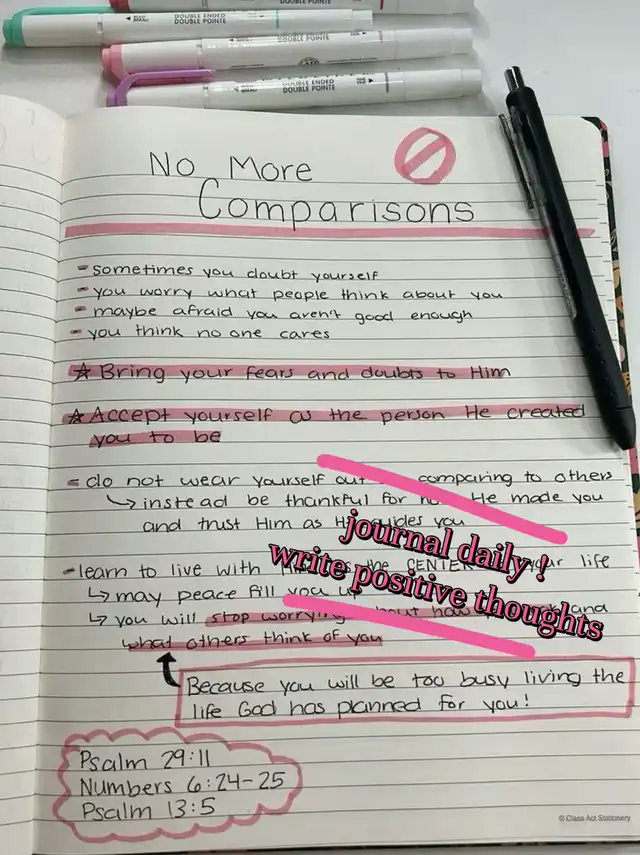 DOUBLE ENDED
DOUBLE POINTE
DOUBLE ENDED
DOUBLE POINTE
DOUBLE ENDED
DOUBLE POINTE
No More
Comparisons
- sometimes you doubt yourself
- you worry what people think about you
- maybe afraid you aren't good enough
- you think no one cares
☆ Bring your fears and doubts to Him
☆ Accept yourself as the person He created
you to be
- do not wear yourself out comparing to others
↳ instead be thankful for He made you
and trust Him as guides you
journal daily !
write positive thoughts
- learn to live with the CENTER your life
↳ may peace fill you
↳ you will stop worrying about how and
what others think of you
Because you will be too busy living the
life God has planned for you!
Psalm 29:11
Numbers 6:24-25
Psalm 13:5
© Class Act Stationery